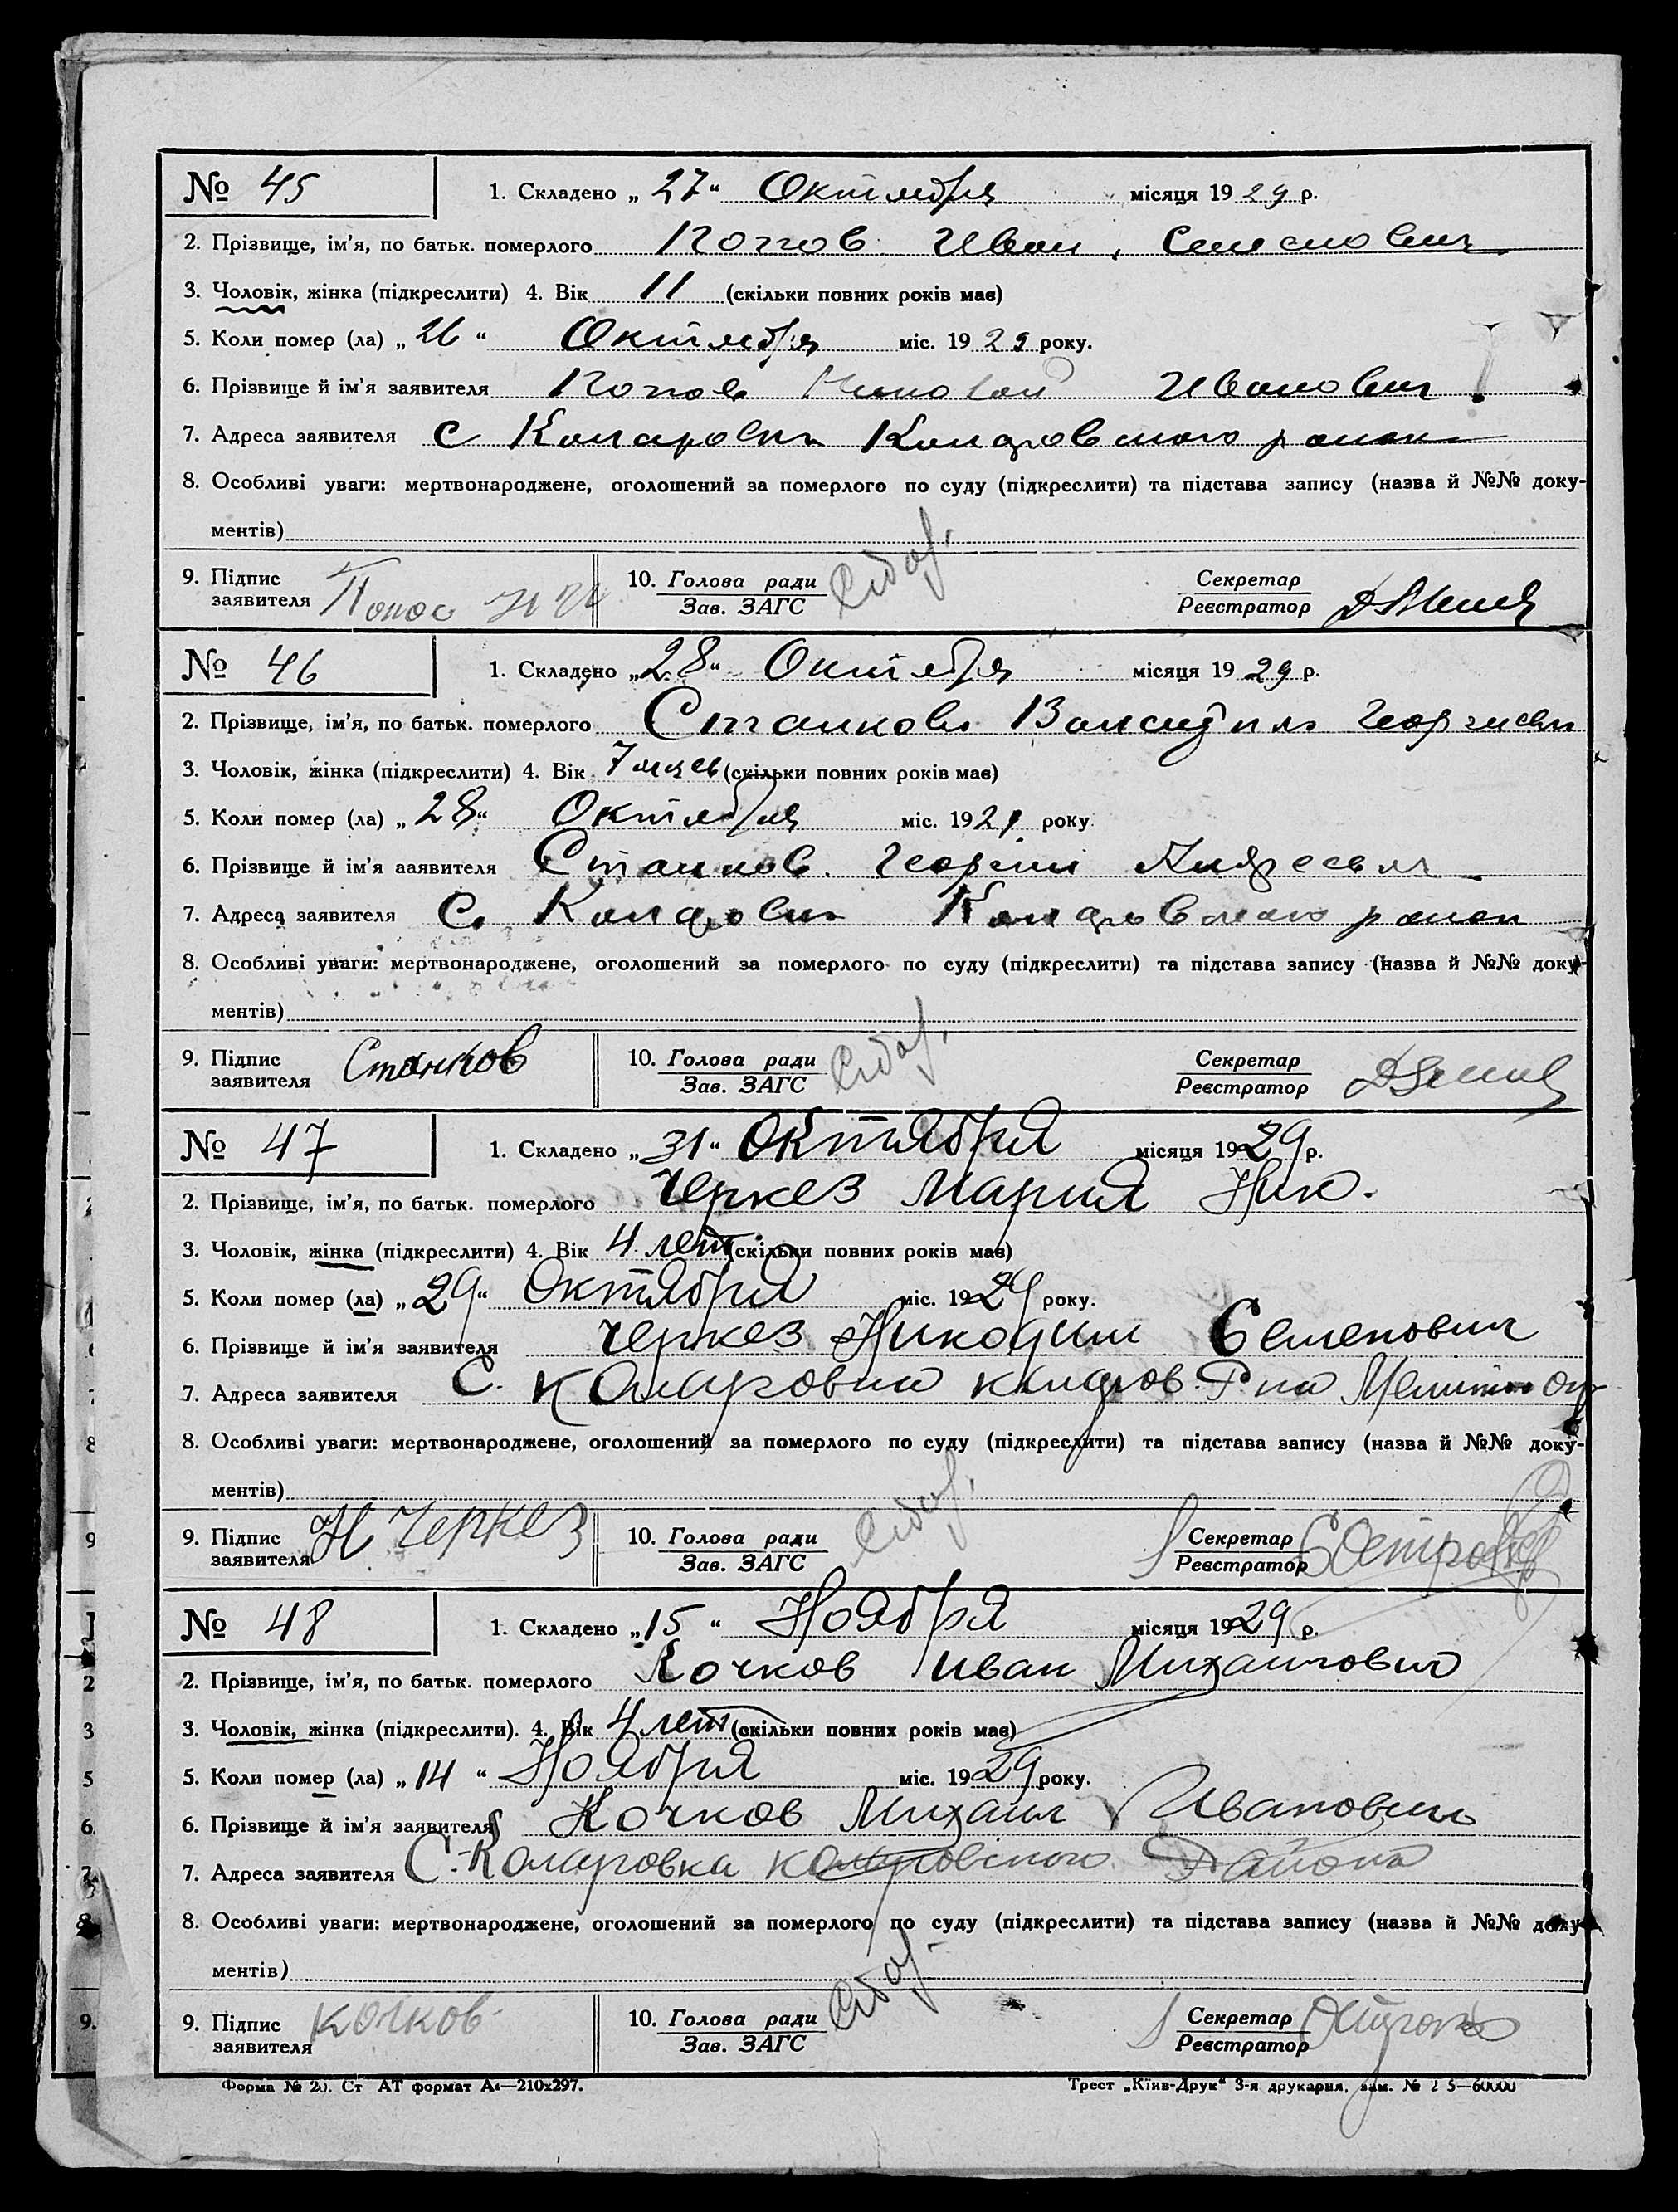 № 45 1. Складено „27“ Октября місяця 1929 р.
2. Прізвище, ім’я, по батьк. померлого Попов Иван
3. Чоловік, жінка (підкреслити) 4. Вік 11 (скільки повних років має)
5. Коли помер (ла) „26“ Октября міс. 1929 року.
6. Прізвище й ім’я заявителя Попов Иванович
7. Адреса заявителя с Коларовка Коларовского
8. Особливі уваги: мертвонароджене, оголошений за померлого по суду (підкреслити) та підстава запису (назва й №№ доку-
ментів)
9. Підпис заявителя Попов 10. Голова ради Секретар
Зав. ЗАГС Реєстратор
№ 46 1. Складено „28“ Октября місяця 1929 р.
2. Прізвище, ім’я, по батьк. померлого Станков
3. Чоловік, жінка (підкреслити) 4. Вік 7 (скільки повних років має)
5. Коли помер (ла) „28“ Октября міс. 1929 року.
6. Прізвище й ім’я ааявителя Станков Георгий Андреевич
7. Адреса заявителя С. Коларовка Коларовского
8. Особливі уваги: мертвонароджене, оголошений за померлого по суду (підкреслити) та підстава запису (назва й №№ доку-
ментів)
9. Підпис заявителя Станков 10. Голова ради Секретар
Зав. ЗАГС Реєстратор
№ 47 1. Складено „31“ Октября місяця 1929 р.
2. Прізвище, ім’я, по батьк. померлого Черкез Мария Ник.
3. Чоловік, жінка (підкреслити) 4. Вік 4 лет (скільки повних років має)
5. Коли помер (ла) „29“ Октября міс. 1929 року.
6. Прізвище й ім’я заявителя Черкез Никодим Семенович
7. Адреса заявителя С. Коларовка коларов. Р-на
8. Особливі уваги: мертвонароджене, оголошений за померлого по суду (підкреслити) та підстава запису (назва й №№ доку-
ментів)
9. Підпис заявителя Н Черкез 10. Голова ради Секретар
Зав. ЗАГС Реєстратор
№ 48 1. Складено „15“ Ноября місяця 1929 р.
2. Прізвище, ім’я, по батьк. померлого Кочков Иван Михайлович
3. Чоловік, жінка (підкреслити). 4. Вік 4 лет (скільки повних років має)
5. Коли помер (ла) „14“ Ноября міс. 1929 року.
6. Прізвище й ім’я заявителя Кочков Михаил Иванович
7. Адреса заявителя С. Коларовка коларовского Района
8. Особливі уваги: мертвонароджене, оголошений за померлого по суду (підкреслити) та підстава запису (назва й №№ доку-
ментів)
9. Підпис заявителя Кочков 10. Голова ради Секретар
Зав. ЗАГС Реєстратор
Форма № 20. Ст АТ формат А4—210х297. Трест „Київ-Друк“ 3-я друкарня, зам. №